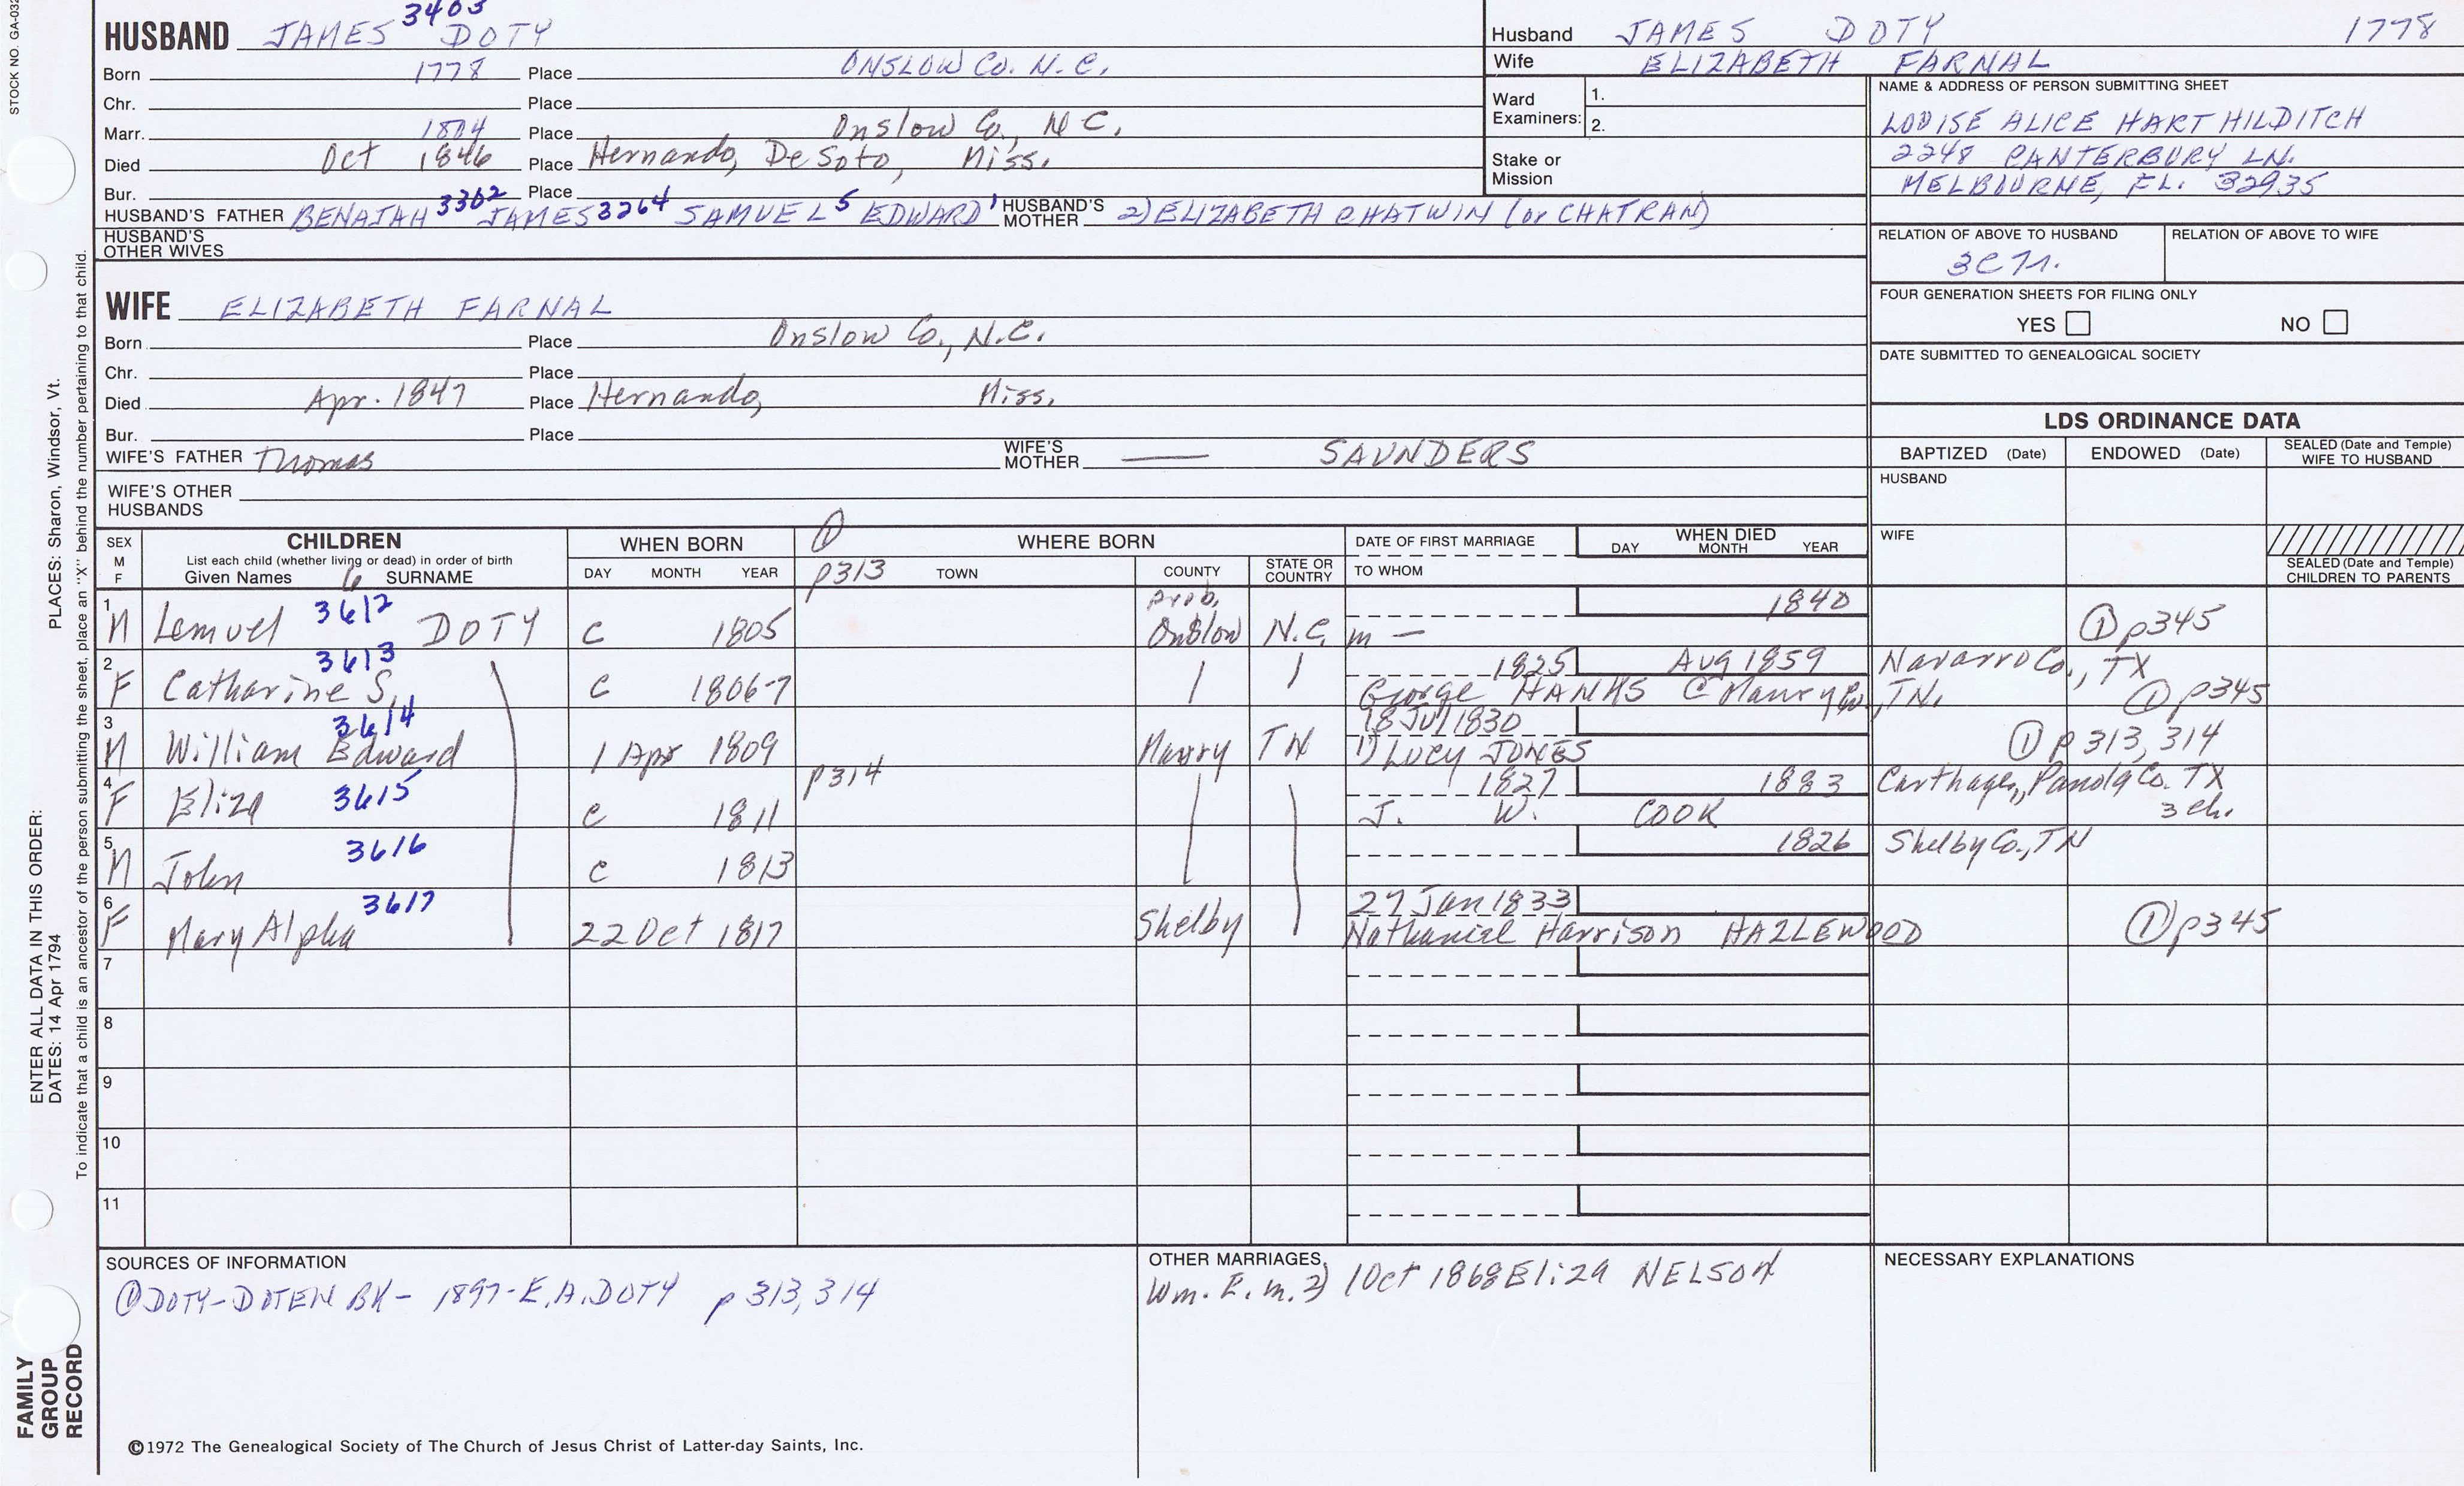 STOCK NO. GA-032
3403
HUSBAND JAMES DOTY
Born 1778 Place ONSLOW CO. N.C.
Chr. Place
Marr. 1804 Place Onslow Co., N.C.
Died Oct 1846 Place Hernando, DeSoto, Miss.
Bur. Place
HUSBAND'S FATHER BENAJAH 3302 JAMES 3264 SAMUEL 5 EDWARD 1 HUSBAND'S MOTHER 2) ELIZABETH CHATWIN (or CHATRAN)
HUSBAND'S OTHER WIVES
Husband JAMES DOTY 1778
Wife ELIZABETH FARNAL
Ward Examiners: 1.
2.
Stake or Mission
NAME & ADDRESS OF PERSON SUBMITTING SHEET
LOUISE ALICE HART HILDITCH
2248 CANTERBURY LN.
MELBOURNE, FL. 32935
RELATION OF ABOVE TO HUSBAND RELATION OF ABOVE TO WIFE
FOUR GENERATION SHEETS FOR FILING ONLY
YES NO
DATE SUBMITTED TO GENEALOGICAL SOCIETY
WIFE ELIZABETH FARNAL
Born Place Onslow Co., N.C.
Chr. Place
Died Apr. 1847 Place Hernando, Miss.
Bur. Place
WIFE'S FATHER Thomas WIFE'S MOTHER — SAUNDERS
WIFE'S OTHER HUSBANDS
LDS ORDINANCE DATA
BAPTIZED (Date) ENDOWED (Date) SEALED (Date and Temple) WIFE TO HUSBAND
HUSBAND
WIFE
SEALED (Date and Temple) CHILDREN TO PARENTS
SEX M F
CHILDREN
List each child (whether living or dead) in order of birth
Given Names 6 SURNAME
WHEN BORN
DAY MONTH YEAR
① p313
WHERE BORN
TOWN COUNTY STATE OR COUNTRY
DATE OF FIRST MARRIAGE
TO WHOM
WHEN DIED
DAY MONTH YEAR
1 M Lemuel 3612 DOTY c 1805 prob. Onslow N.C. m — 1840 ① p345
2 F Catharine S. 3613 c 1806-7 1825 Aug 1859 Navarro Co., TX
George HANKS @ Maury Co., TN. ① p345
3 M William Edward 3614 1 Apr 1809 Maury TN 18 Jul 1830
1) Lucy JONES ① p 313, 314
4 F Eliza 3615 c 1811 p314 1827 1883 Carthage, Panola Co. TX
J. W. COOK 3 ch.
5 M John 3616 c 1813 1826 Shelby Co., TN
6 F Mary Alpha 3617 22 Oct 1817 Shelby 27 Jan 1833
Nathaniel Harrison HAZLEWOOD ① p345
7
8
9
10
11
SOURCES OF INFORMATION
① DOTY-DOTEN BK - 1897 - E.A. DOTY p 313, 314
OTHER MARRIAGES
Wm. E. m. 2) 1 Oct 1868 Eliza NELSON
NECESSARY EXPLANATIONS
©1972 The Genealogical Society of The Church of Jesus Christ of Latter-day Saints, Inc.
FAMILY GROUP RECORD
ENTER ALL DATA IN THIS ORDER:
DATES: 14 Apr 1794
PLACES: Sharon, Windsor, Vt.
To indicate that a child is an ancestor of the person submitting the sheet, place an "X" behind the number pertaining to that child.